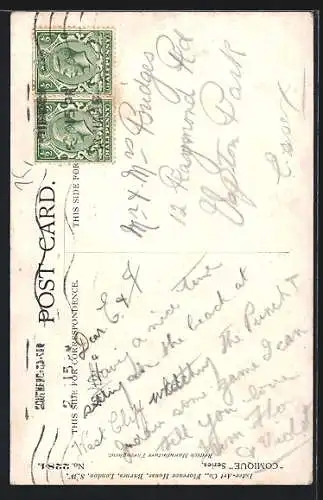 POST CARD.
THIS SIDE FOR CORRESPONDENCE.
THIS SIDE FOR
HALFPENNY
HALFPENNY
SOUTHEND-ON-SEA
2 15
Mr & Mrs Bridges
12 Raymond Rd
Upton Park
Essex
Dear E & J
Having a nice time
sitting on the beach at
West Cliff watching the Punch &
Judies some game I can
tell you love
from Flo
& Violet
"COMIQUE" Series.
Inter-Art Co., Florence House, Barnes, London, S.W.
British Manufacture Throughout.
No. 2284.